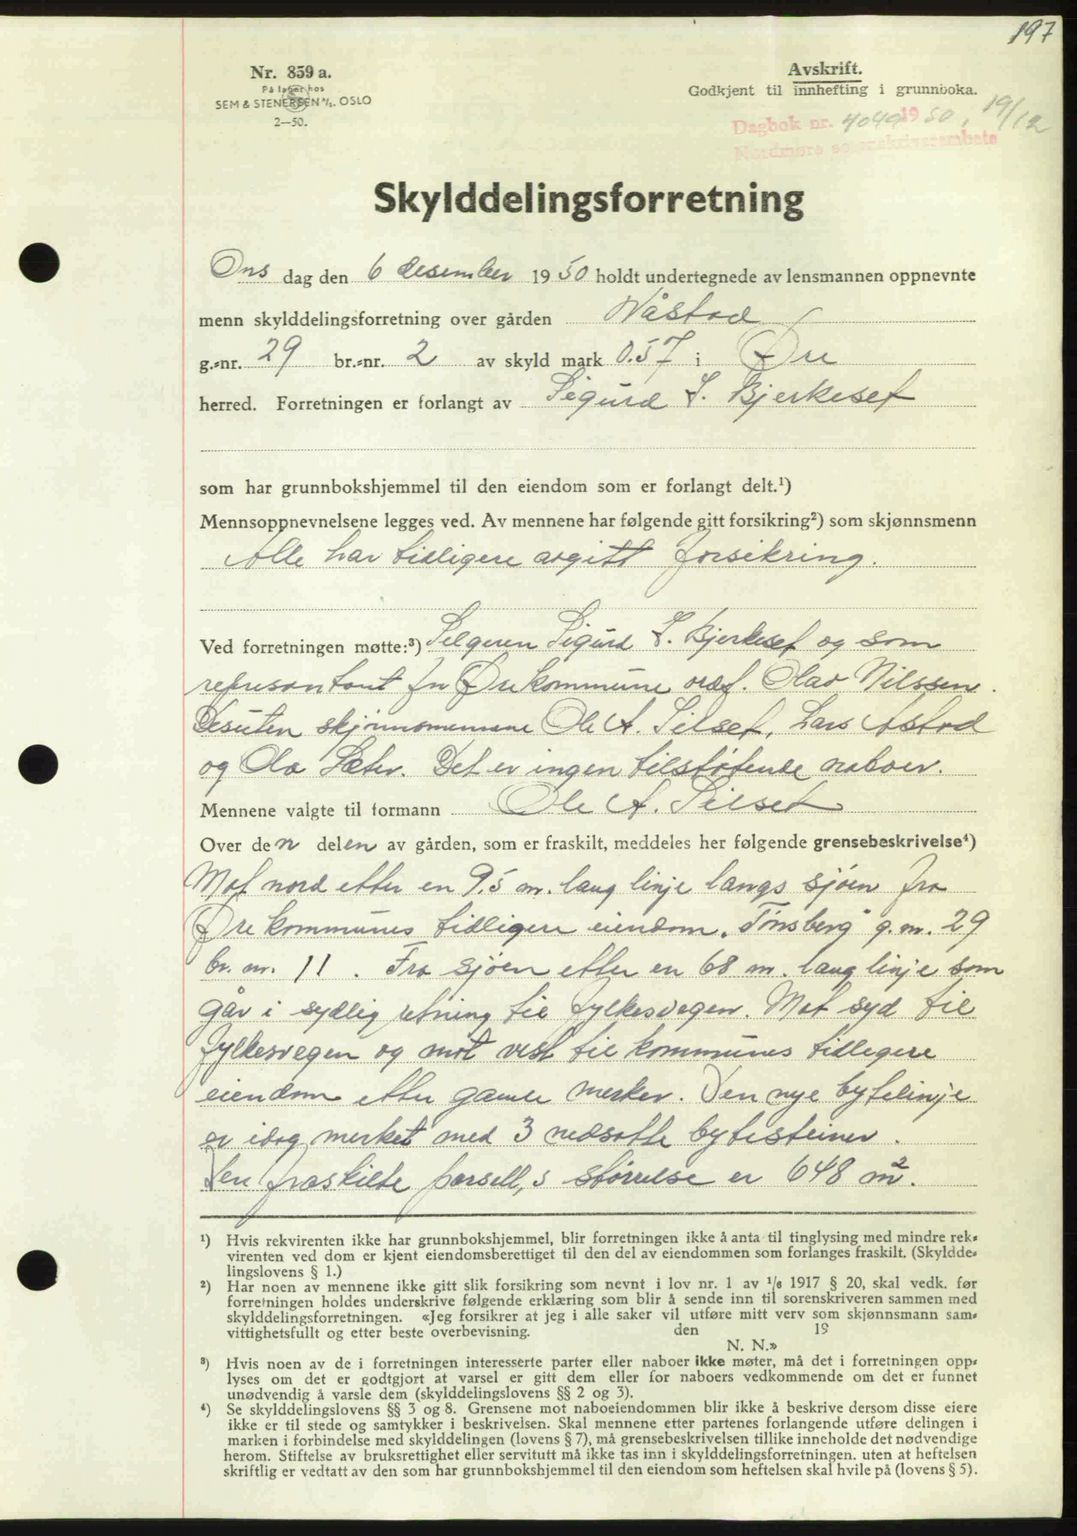 197
Nr. 859 a.
På lager hos
SEM & STENERSEN A/S. OSLO
2—50.
Avskrift.
Godkjent til innhefting i grunnboka.
Dagbok nr. 4049 1950, 19/12
Nordmøre sorenskriverembete
Skylddelingsforretning
Ons dag den 6 desember 1950 holdt undertegnede av lensmannen oppnevnte
menn skylddelingsforretning over gården Våstad
g.-nr. 29 br.-nr. 2 av skyld mark 0.57 i Øre
herred. Forretningen er forlangt av Sigurd S. Bjerkeset
som har grunnbokshjemmel til den eiendom som er forlangt delt.¹)
Mennsoppnevnelsene legges ved. Av mennene har følgende gitt forsikring²) som skjønnsmenn
Alle har tidligere avgitt forsikring.
Ved forretningen møtte:³) Selgeren Sigurd S. Bjerkeset og som
representant for Øre kommune ordf. Olav Nilssen.
Desuten skjønnsmennene Ole A. Silset, Lars Astad
og Ola Sæter. Det er ingen tilstøtende naboer.
Mennene valgte til formann Ole A. Silset
Over den delen av gården, som er fraskilt, meddeles her følgende grensebeskrivelse⁴)
Mot nord etter en 9,5 m. lang linje langs sjøen fra
Øre kommunes tidligere eiendom „Tønsberg" g.nr. 29
br. nr. 11. Fra sjøen etter en 68 m. lang linje som
går i sydlig retning til fylkesvegen. Mot syd til
fylkesvegen og mot vest til kommunes tidligere
eiendom etter gamle merker. Den nye bytelinje
er idag merket med 3 nedsatte bytesteiner.
Den fraskilte parsell,s størrelse er 648 m².
¹) Hvis rekvirenten ikke har grunnbokshjemmel, blir forretningen ikke å anta til tinglysing med mindre rek-
virenten ved dom er kjent eiendomsberettiget til den del av eiendommen som forlanges fraskilt. (Skyldde-
lingslovens § 1.)
²) Har noen av mennene ikke gitt slik forsikring som nevnt i lov nr. 1 av 1/6 1917 § 20, skal vedk. før
forretningen holdes underskrive følgende erklæring som blir å sende inn til sorenskriveren sammen med
skylddelingsforretningen. «Jeg forsikrer at jeg i alle saker vil utføre mitt verv som skjønnsmann sam-
vittighetsfullt og etter beste overbevisning. den 19
N. N.»
³) Hvis noen av de i forretningen interesserte parter eller naboer ikke møter, må det i forretningen opp-
lyses om det er godtgjort at varsel er gitt dem eller for naboers vedkommende om det er funnet
unødvendig å varsle dem (skylddelingslovens §§ 2 og 3).
⁴) Se skylddelingslovens §§ 3 og 8. Grensene mot naboeiendommen blir ikke å beskrive dersom disse eiere
ikke er til stede og samtykker i beskrivelsen. Skal mennene etter partenes forlangende utføre delingen i
marken i forbindelse med skylddelingen (lovens § 7), må grensebeskrivelsen tillike inneholde det nødvendige
herom. Stiftelse av bruksrettighet eller servitutt må ikke tas inn i skylddelingsforretningen, uten at heftelsen
skriftlig er vedtatt av den som har grunnbokshjemmel til den eiendom som heftelsen skal hvile på (lovens § 5).